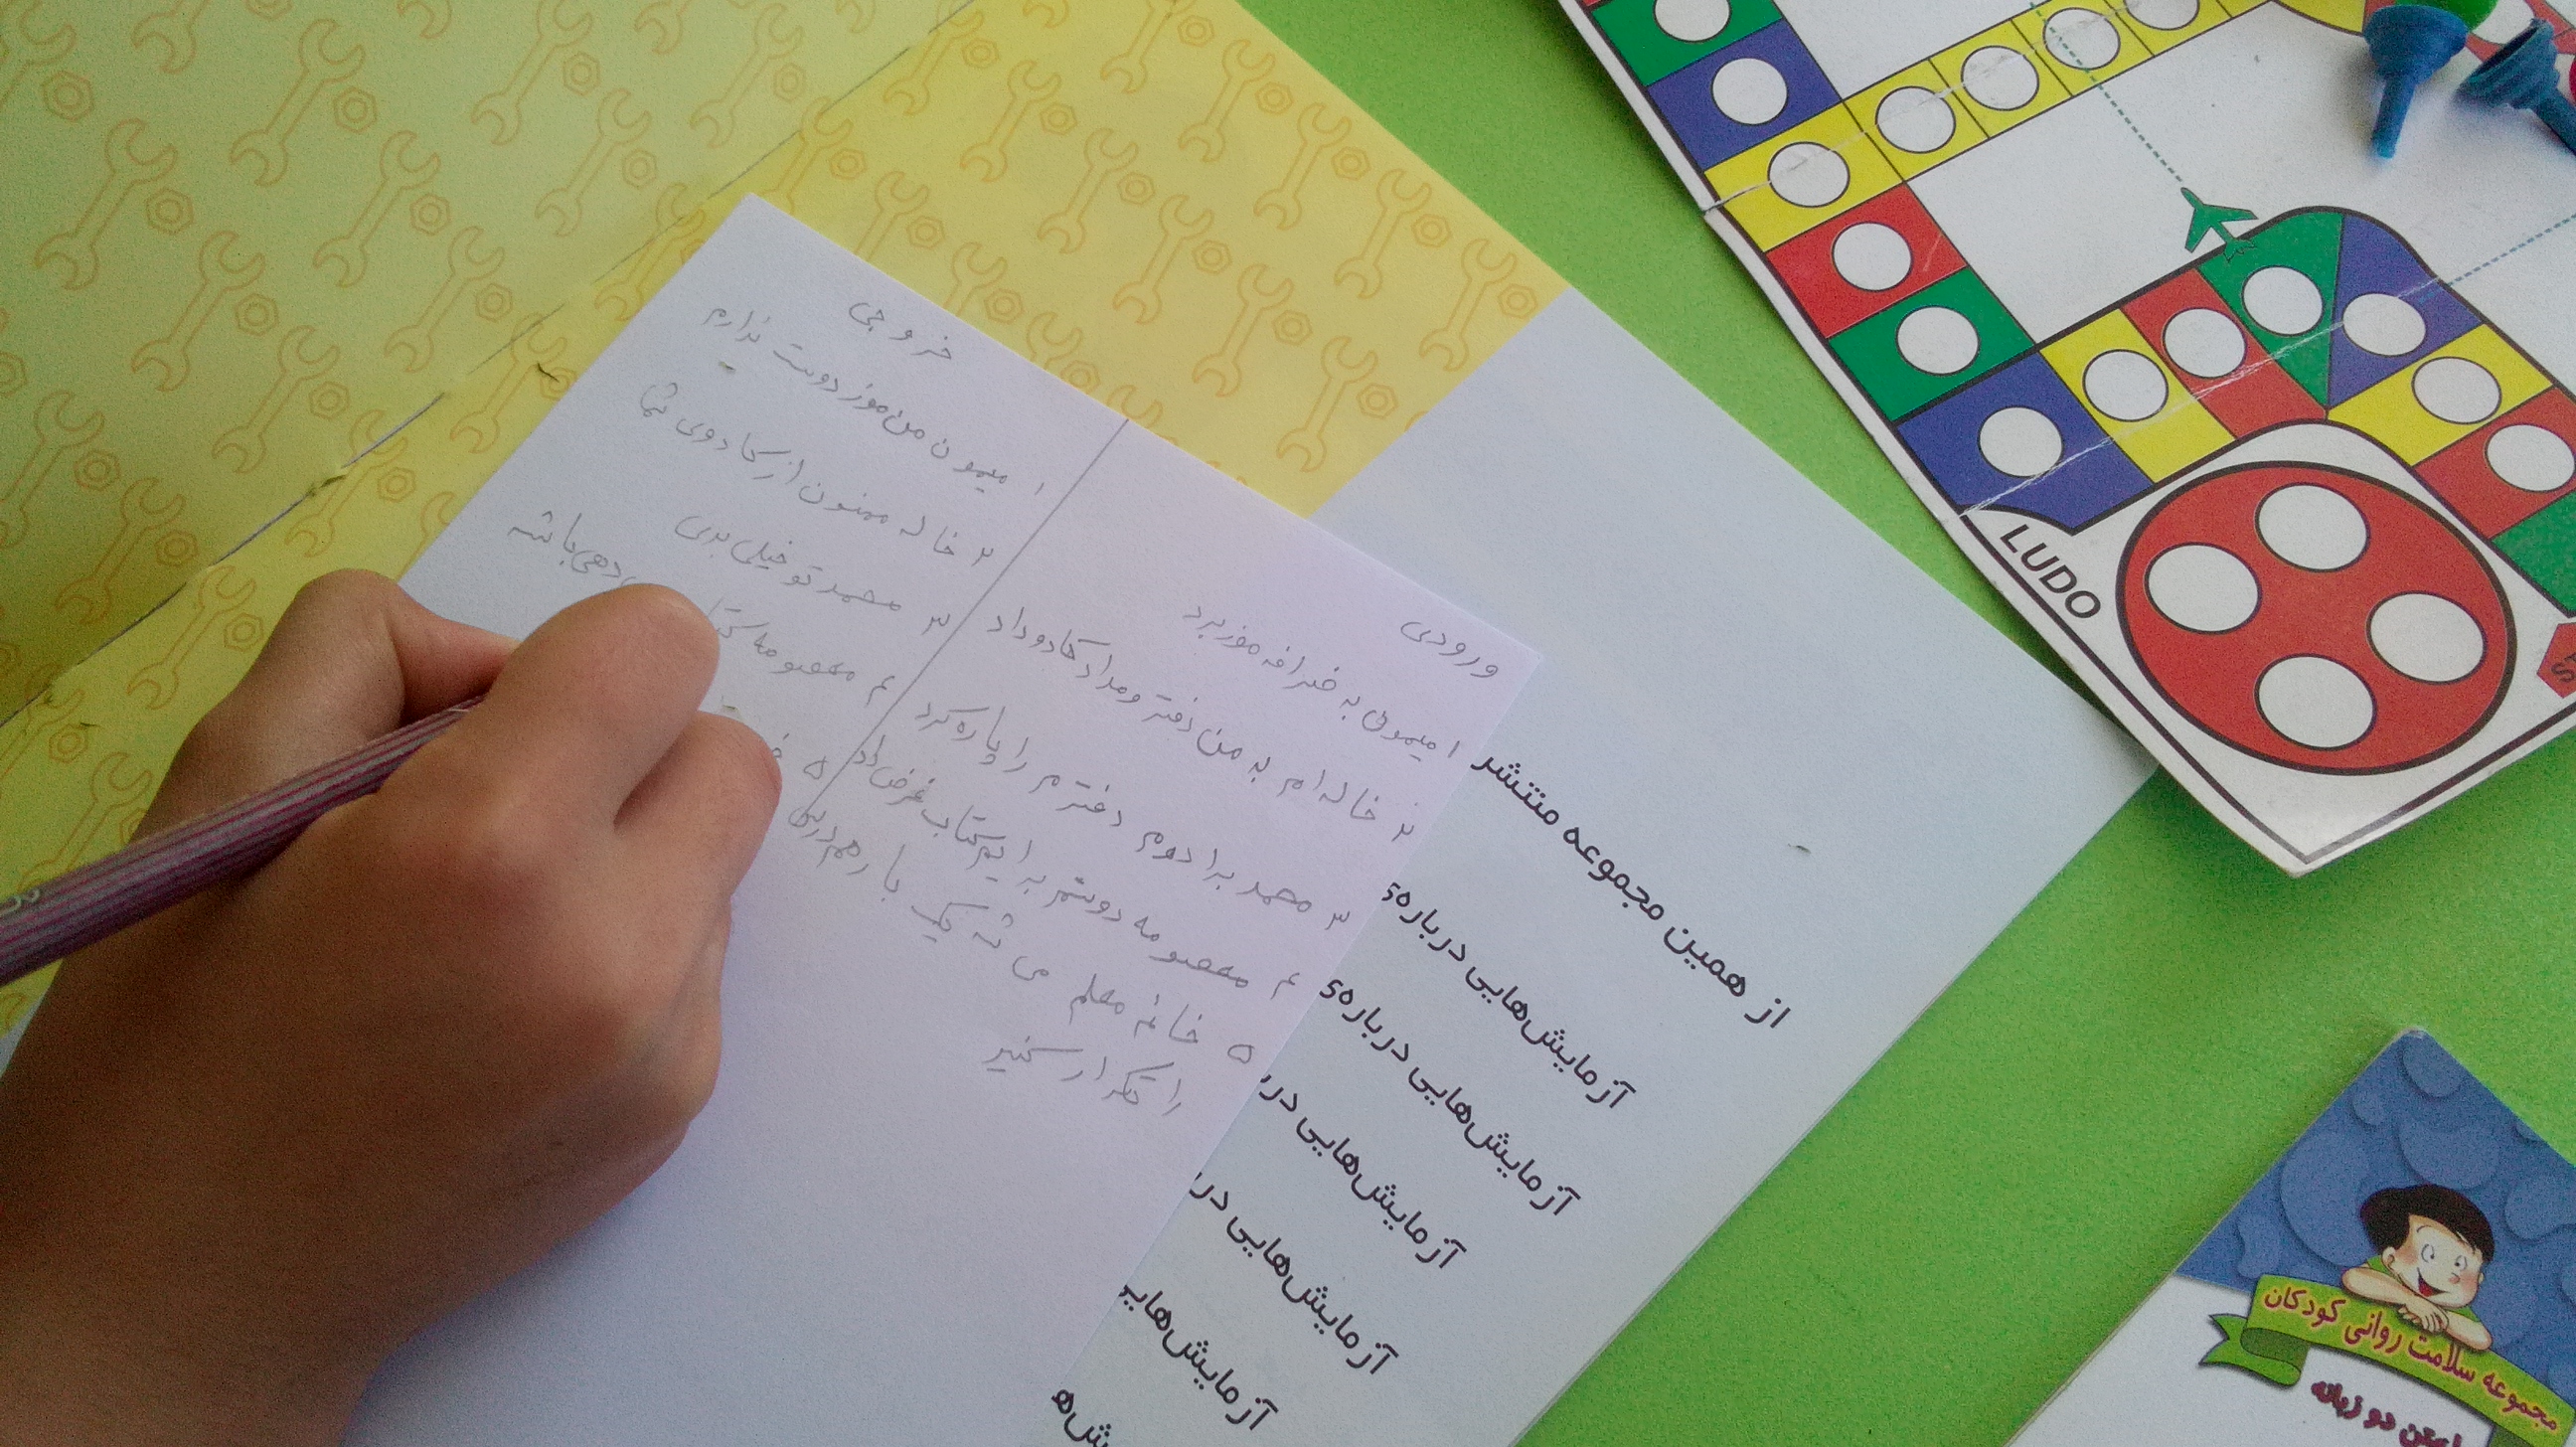 ورودی
۱ میمون به زرافه موز برد
۲ خاله ام به من دفتر و مداد کادو داد
۳ محمد برادرم دفترم را پاره کرد
۴ معصومه دوستم برایم کتاب غرض داد
۵ خانم معلم می شه یک بار هم درس
را تکرار کنید
خروجی
۱ میمون من موز دوست ندارم
۲ خاله ممنون از کادوی شما
۳ محمد تو خیلی بدی
۴ معصومه
دهی باشه
۵
از همین مجموعه منتشر
آزمایش‌هایی درباره‌ی
آزمایش‌هایی درباره‌ی
آزمایش‌هایی در
آزمایش‌هایی در
آزمایش‌هایی
LUDO
مجموعه سلامت روانی کودکان
دو زبانه